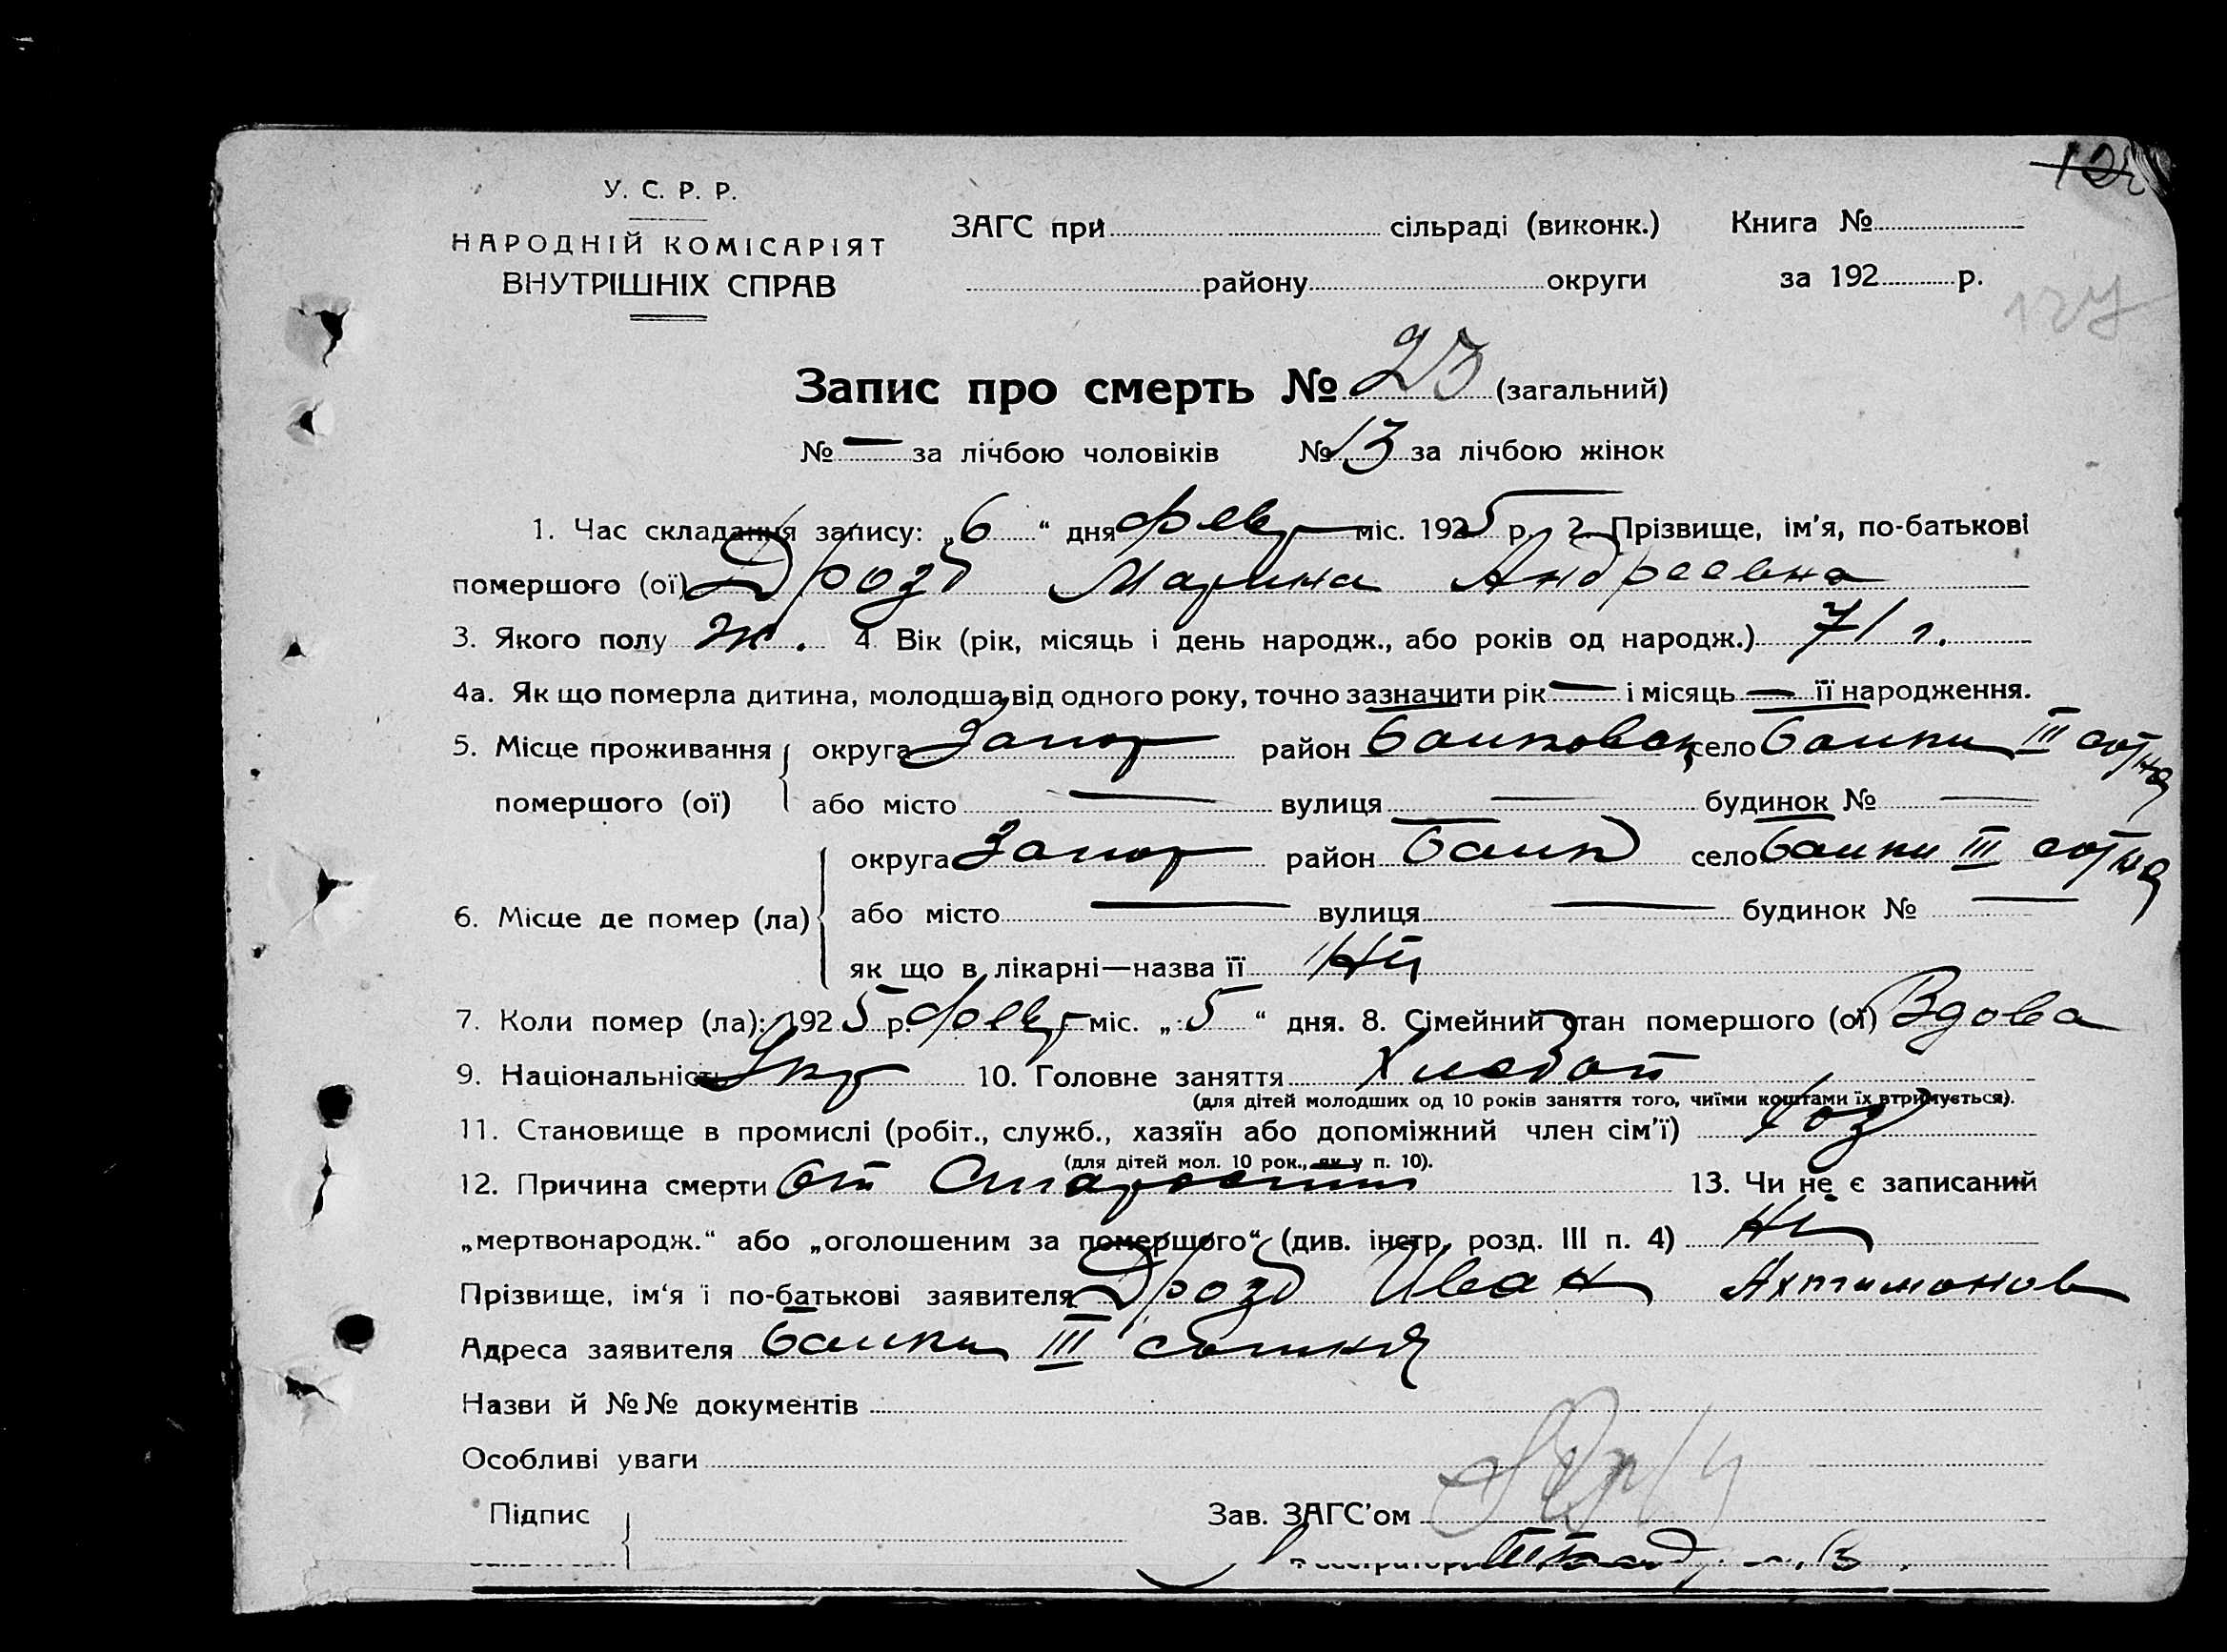 У. С. Р. Р.
НАРОДНІЙ КОМІСАРІЯТ
ВНУТРІШНІХ СПРАВ
ЗАГС при сільраді (виконк.) Книга №
району округи за 192 р.
127
Запис про смерть № 23 (загальний)
№ — за лічбою чоловіків № 13 за лічбою жінок
1. Час складання запису: „6“ дня февр міс. 1925 р. 2. Прізвище, ім'я, по-батькові
помершого (ої) Дрозд Марина Андреевна
3. Якого полу ж. 4. Вік (рік, місяць і день народж., або років од народж.) 71 г.
4а. Як що померла дитина, молодша від одного року, точно зазначити рік — і місяць — її народження.
5. Місце проживання помершого (ої) округа Запор район Балковск село Балки III сотня
або місто — вулиця — будинок № —
6. Місце де помер (ла) округа Запор район Балк село Балки III сотня
або місто — вулиця — будинок № —
як що в лікарні—назва її Ні
7. Коли помер (ла): 1925 р. февр міс. „5“ дня. 8. Сімейний стан помершого (ої) Вдова
9. Національність Укр 10. Головне заняття Хлебоп
(для дітей молодших од 10 років заняття того, чиїми коштами їх втримується).
11. Становище в промислі (робіт., служб., хазяїн або допоміжний член сім'ї) Хоз
(для дітей мол. 10 рок., як у п. 10).
12. Причина смерти От Старости 13. Чи не є записаний
„мертвонародж.“ або „оголошеним за померщого“ (див. інстр. розд. III п. 4) Ні
Прізвище, ім'я і по-батькові заявителя Дрозд Иван
Адреса заявителя Балки III сотня
Назви й №№ документів
Особливі уваги
Підпис Зав. ЗАГС'ом